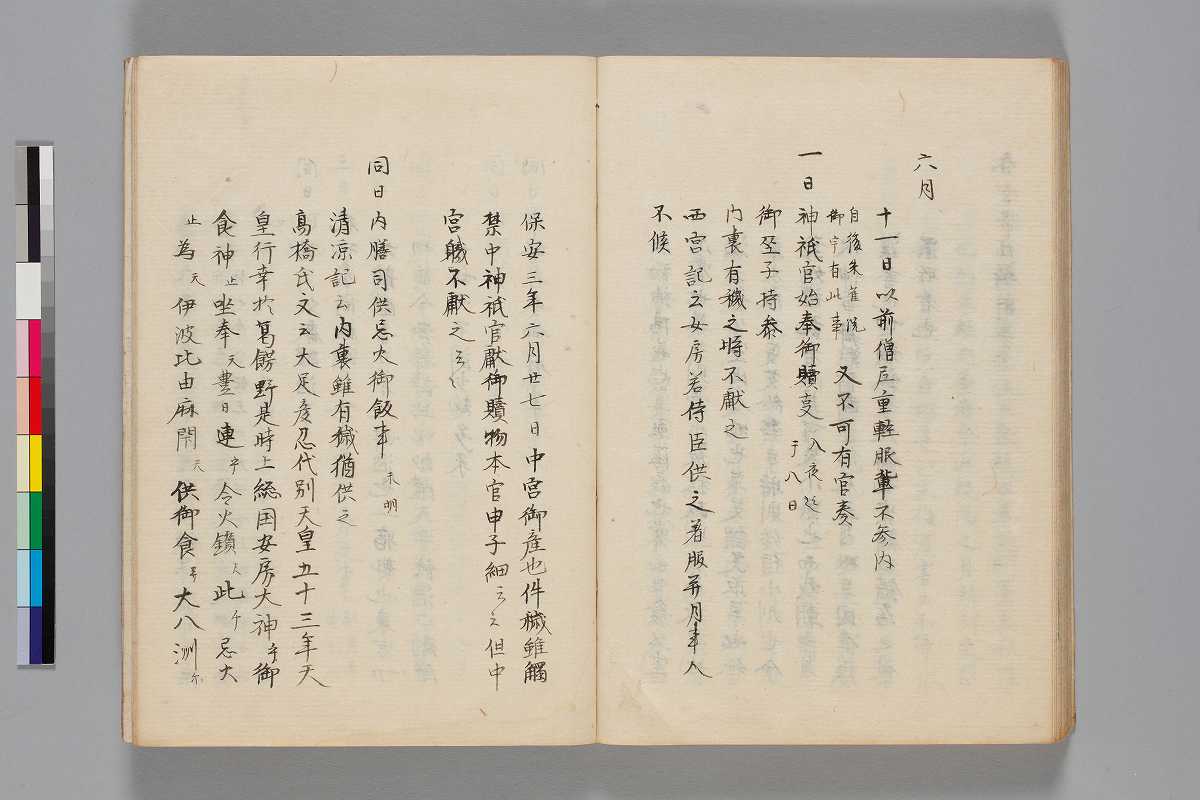 六月
十一日以前僧尼重軽服輩不参内
自後朱雀院
御宇有此事
又不可有官奏
一日神祇官始奉御贖事
入夜迄
于八日
御巫子持参
内裏有穢之時不献之
西宮記云女房若侍臣供之着服并月事人
不候
保安三年六月廿七日中宮御産也件穢雖觸
禁中神祇官献御贖物本官申子細云々但中
宮職不献之云々
同日内膳司供忌火御飯事
未明
清凉記云内裏雖有穢猶供之
高橋氏文云大足彦忍代別天皇五十三年天
皇行幸於葛餝野是時上総国安房大神乎御
食神止坐奉天豊日連乎令火鑽天此乎忌火
止為天伊波比由麻閇天供御食乎大八洲尓